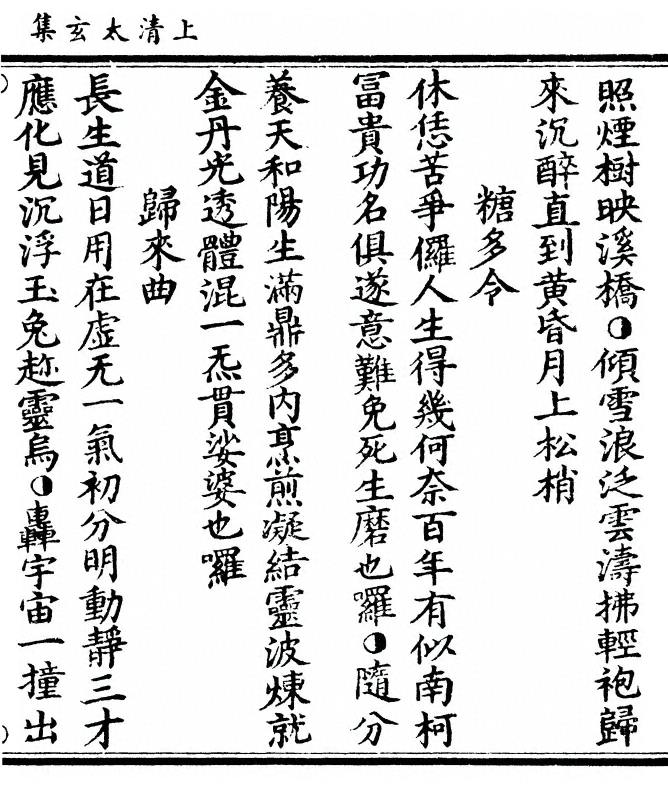 上清太玄集
照煙樹映溪橋◑傾雪浪泛雲濤拂輕袍歸
來沉醉直到黃昏月上松梢
糖多令
休恁苦爭儸人生得幾何奈百年有似南柯
冨貴功名俱遂意難免死生磨也囉◑隨分
養天和陽生滿鼎多內烹煎凝結靈波煉就
金丹光透體混一炁貫娑婆也囉
歸來曲
長生道日用在虛无一氣初分明動靜三才
應化見沉浮玉兔趂靈烏◑轟宇宙一撞出